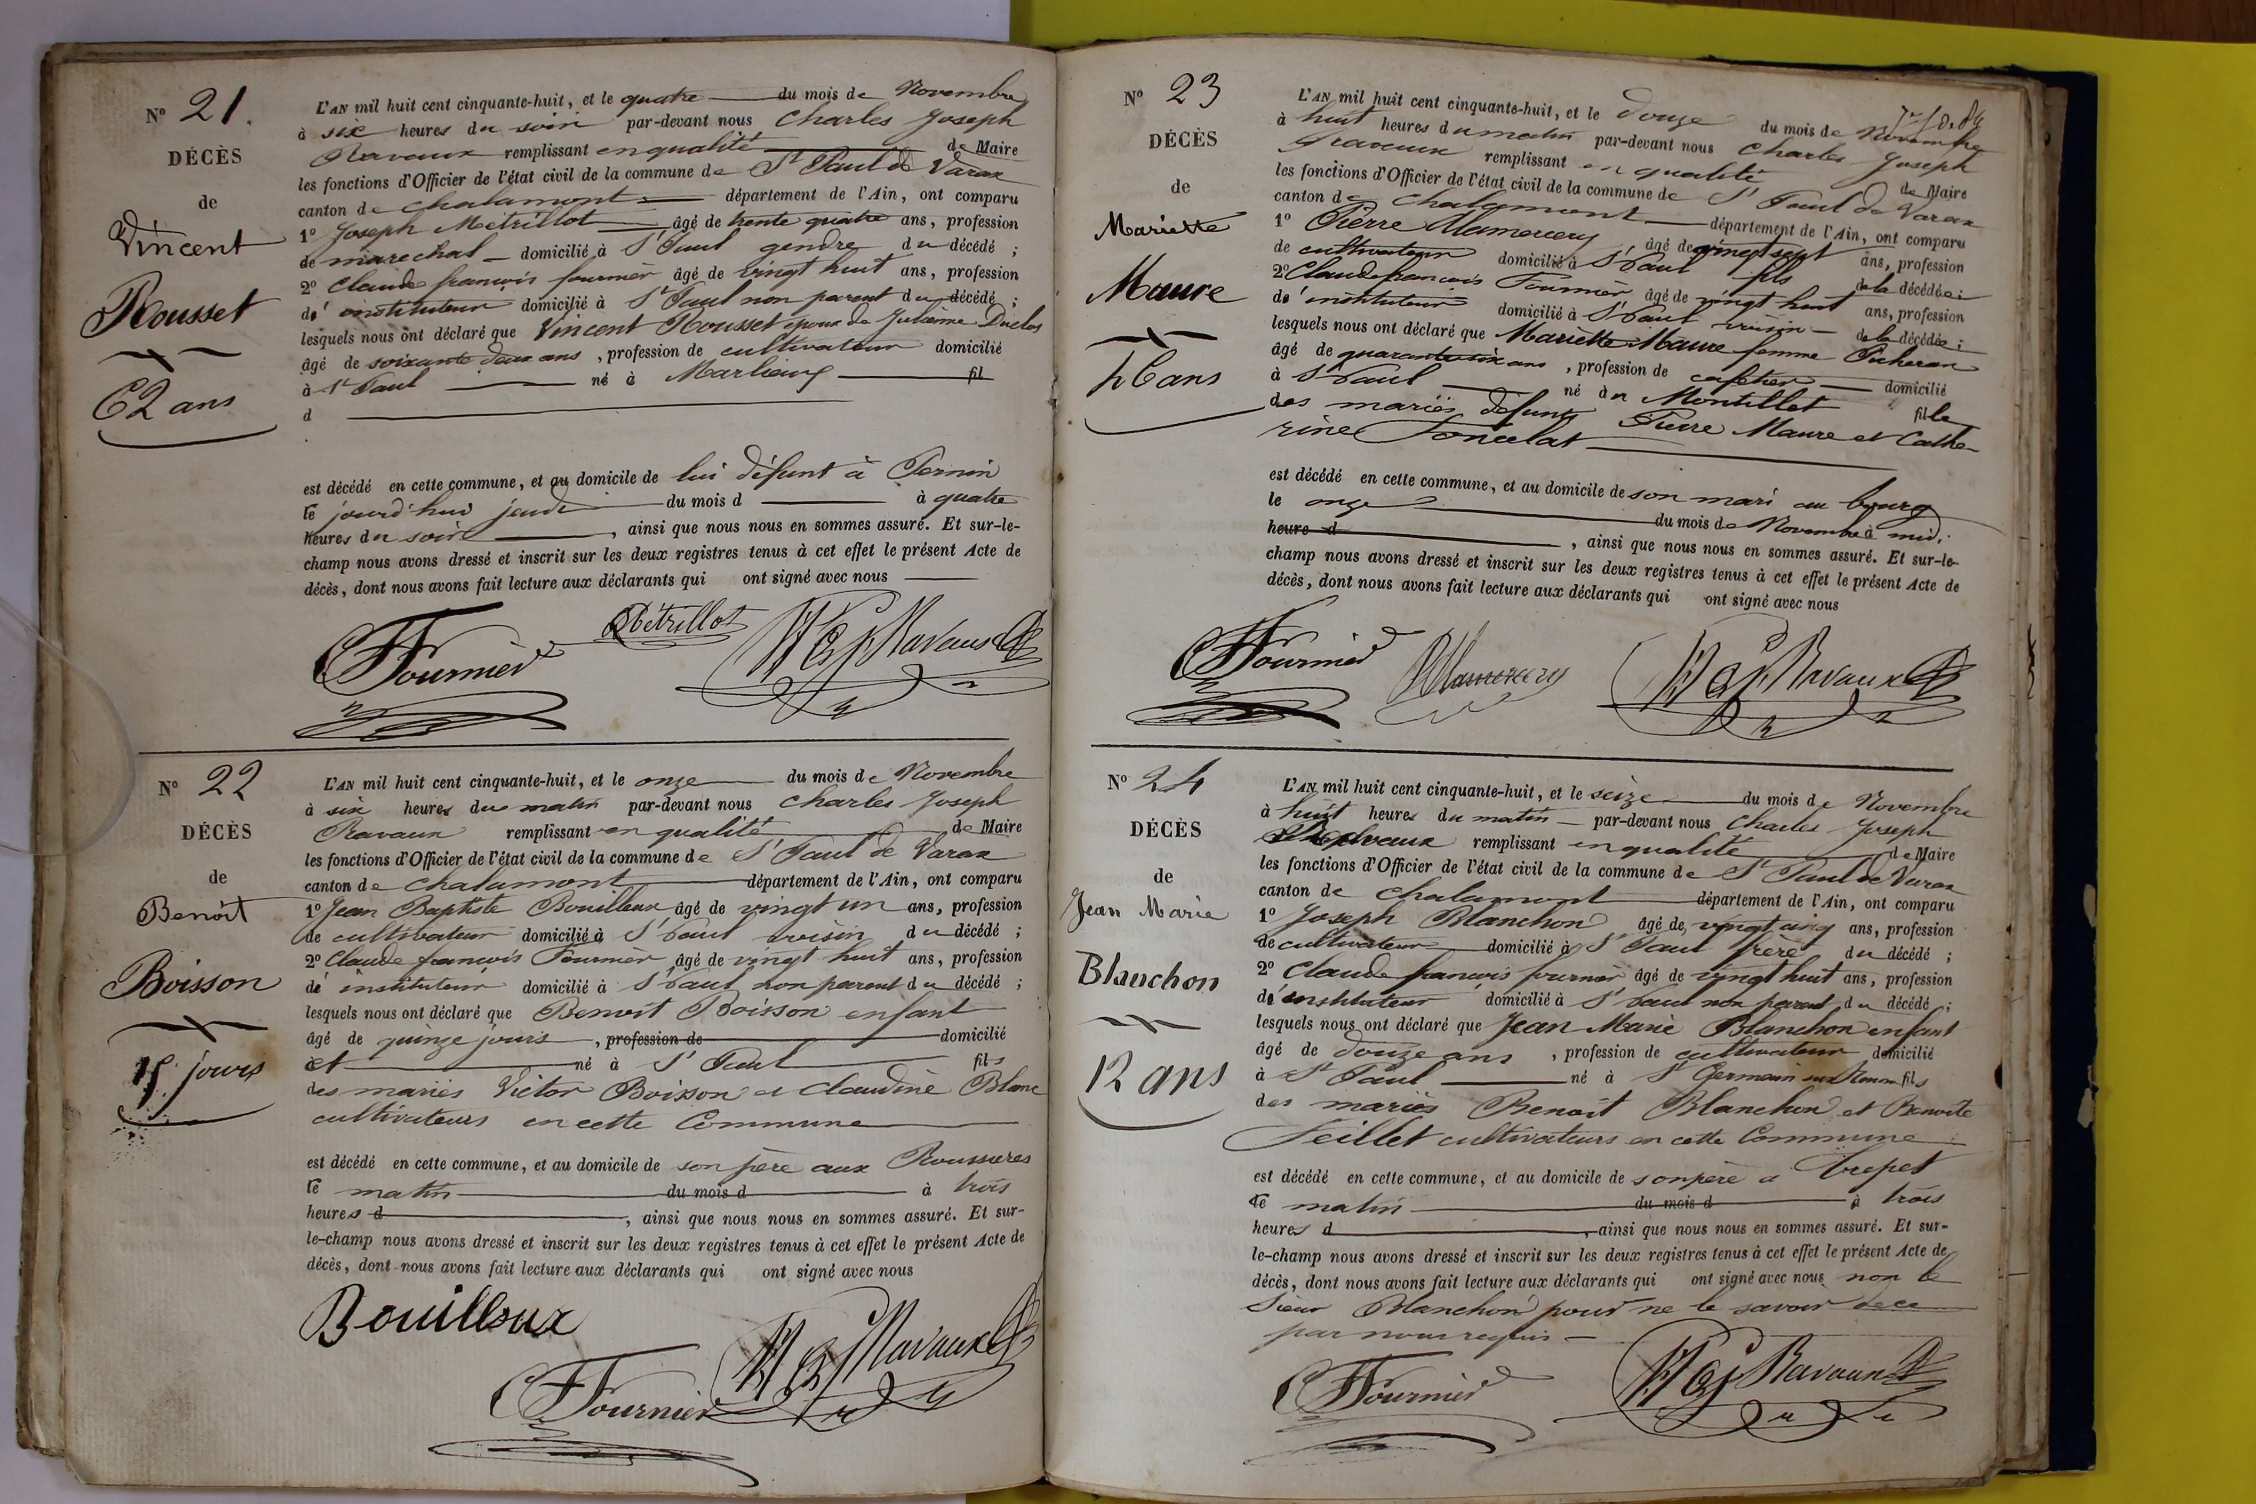 N° 21.
DÉCÈS
de
Vincent
Rousset
62 ans
L'AN mil huit cent cinquante-huit, et le quatre du mois de Novembre
à six heures du soir par-devant nous Charles Joseph
Ravaux remplissant en qualité de Maire
les fonctions d'Officier de l'état civil de la commune de St Paul de Varax
canton de Chalamont département de l'Ain, ont comparu
1° Joseph Métrillot âgé de trente quatre ans, profession
de marechal domicilié à St Paul gendre du décédé ;
2° Claude francois fournier âgé de vingt huit ans, profession
d' instituteur domicilié à St Paul non parent du décédé ;
lesquels nous ont déclaré que Vincent Rousset époux de Julienne Duclos
âgé de soixante deux ans, profession de cultivateur domicilié
à St Paul né à Marlieux fil
d
est décédé en cette commune, et au domicile de lui défunt à Pernin
le jourd'hui jeudi du mois d à quatre
heures du soir, ainsi que nous nous en sommes assuré. Et sur-le-
champ nous avons dressé et inscrit sur les deux registres tenus à cet effet le présent Acte de
décès, dont nous avons fait lecture aux déclarants qui ont signé avec nous
Métrillot
Fournier Ravaux
N° 22
DÉCÈS
de
Benoît
Boisson
15 jours
L'AN mil huit cent cinquante-huit, et le onze du mois de Novembre
à six heures du matin par-devant nous Charles Joseph
Ravaux remplissant en qualité de Maire
les fonctions d'Officier de l'état civil de la commune de St Paul de Varax
canton de Chalamont département de l'Ain, ont comparu
1° Jean Baptiste Bouilloux âgé de vingt un ans, profession
de cultivateur domicilié à St Paul voisin du décédé ;
2° Claude francois Fournier âgé de vingt huit ans, profession
d' instituteur domicilié à St Paul non parent du décédé ;
lesquels nous ont déclaré que Benoit Boisson enfant
âgé de quinze jours, profession de domicilié
et né à St Paul fils
des mariés Victor Boisson et Claudine Blanc
cultivateurs en cette Commune
est décédé en cette commune, et au domicile de son père aux Roussieres
le matin du mois d à trois
heures d, ainsi que nous nous en sommes assuré. Et sur-
le-champ nous avons dressé et inscrit sur les deux registres tenus à cet effet le présent Acte de
décès, dont nous avons fait lecture aux déclarants qui ont signé avec nous
Bouilloux
Fournier Ravaux
N° 23
DÉCÈS
de
Mariette
Maure
46 ans
L'AN mil huit cent cinquante-huit, et le douze du mois de Novembre
à huit heures du matin par-devant nous Charles Joseph
Ravaux remplissant en qualité de Maire
les fonctions d'Officier de l'état civil de la commune de St Paul de Varax
canton de Chalamont département de l'Ain, ont comparu
1° Pierre Mamercery âgé de vingt sept ans, profession
de cultivateur domicilié à St Paul fils de la décédée ;
2° Claude francois Fournier âgé de vingt huit ans, profession
d' instituteur domicilié à St Paul voisin de la décédée ;
lesquels nous ont déclaré que Mariette Maure femme Picheran
âgé de quarante six ans, profession de cafetier domicilié
à St Paul né au Montellet fille
des mariés défunts Pierre Maure et Cathe-
rine Poncelat
est décédé en cette commune, et au domicile de son mari au bourg
le onze du mois de Novembre à midi
heure d, ainsi que nous nous en sommes assuré. Et sur-le-
champ nous avons dressé et inscrit sur les deux registres tenus à cet effet le présent Acte de
décès, dont nous avons fait lecture aux déclarants qui ont signé avec nous
Fournier Mamercery Ravaux
N° 24
DÉCÈS
de
Jean Marie
Blanchon
12 ans
L'AN mil huit cent cinquante-huit, et le seize du mois de Novembre
à huit heures du matin par-devant nous Charles Joseph
remplissant en qualité de Maire
les fonctions d'Officier de l'état civil de la commune de St Paul de Varax
canton de Chalamont département de l'Ain, ont comparu
1° Joseph Blanchon âgé de vingt cinq ans, profession
de cultivateur domicilié à St Paul frère du décédé ;
2° Claude francois fournier âgé de vingt huit ans, profession
d' instituteur domicilié à St Paul non parent du décédé ;
lesquels nous ont déclaré que Jean Marie Blanchon enfant
âgé de douze ans, profession de cultivateur domicilié
à St Paul né à St Germain sur Renon fils
des mariés Benoit Blanchon et Benoite
Feillet cultivateurs en cette Commune
est décédé en cette commune, et au domicile de son père à Crepet
le matin du mois d à trois
heures d, ainsi que nous nous en sommes assuré. Et sur-
le-champ nous avons dressé et inscrit sur les deux registres tenus à cet effet le présent Acte de
décès, dont nous avons fait lecture aux déclarants qui ont signé avec nous non le
Sieur Blanchon pour ne le savoir de ce
par nous requis
Fournier Ravaux